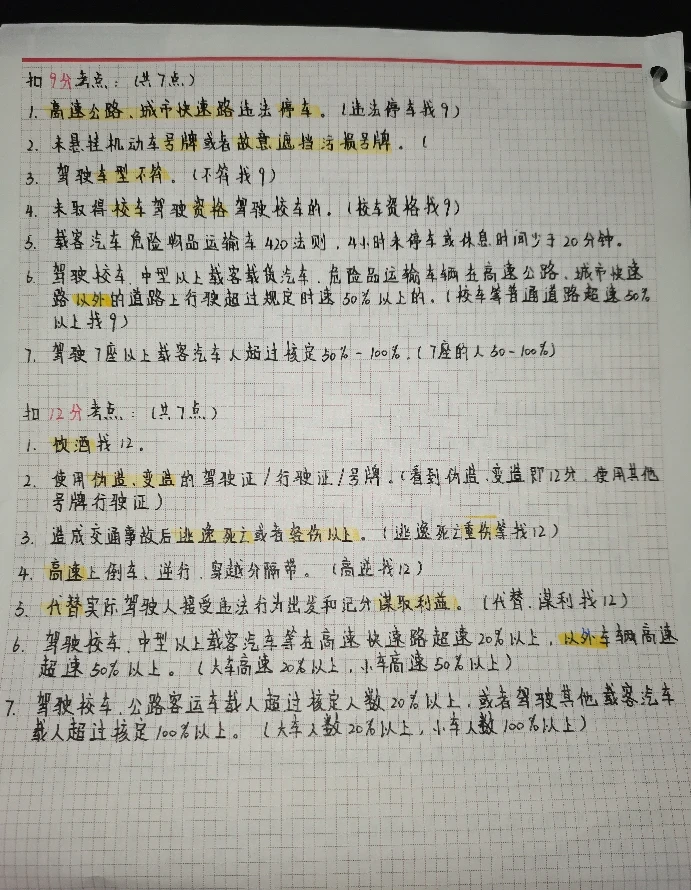 扣9分考点：（共7点）
1. 高速公路、城市快速路违法停车。（违法停车找9）
2. 未悬挂机动车号牌或者故意遮挡污损号牌。（
3. 驾驶车型不符。（不符找9）
4. 未取得校车驾驶资格驾驶校车的。（校车资格找9）
5. 载客汽车危险物品运输车420法则，4小时未停车或休息时间少于20分钟。
6. 驾驶校车、中型以上载客载货汽车、危险品运输车辆在高速公路、城市快速
路以外的道路上行驶超过规定时速50%以上的。（校车等普通道路超速50%
以上找9）
7. 驾驶7座以上载客汽车人超过核定50%-100%。（7座的人50-100%）
扣12分考点：（共7点）
1. 饮酒找12。
2. 使用伪造、变造的驾驶证/行驶证/号牌。（看到伪造、变造即12分，使用其他
号牌行驶证）
3. 造成交通事故后逃逸死亡或者轻伤以上。（逃逸死亡重伤等找12）
4. 高速上倒车、逆行、穿越分隔带。（高逆找12）
5. 代替实际驾驶人接受违法行为出发和记分谋取利益。（代替、谋利找12）
6. 驾驶校车、中型以上载客汽车等在高速快速路超速20%以上，以外车辆高速
超速50%以上。（大车高速20%以上，小车高速50%以上）
7. 驾驶校车、公路客运车载人超过核定人数20%以上，或者驾驶其他载客汽车
载人超过核定100%以上。（大车人数20%以上，小车人数100%以上）